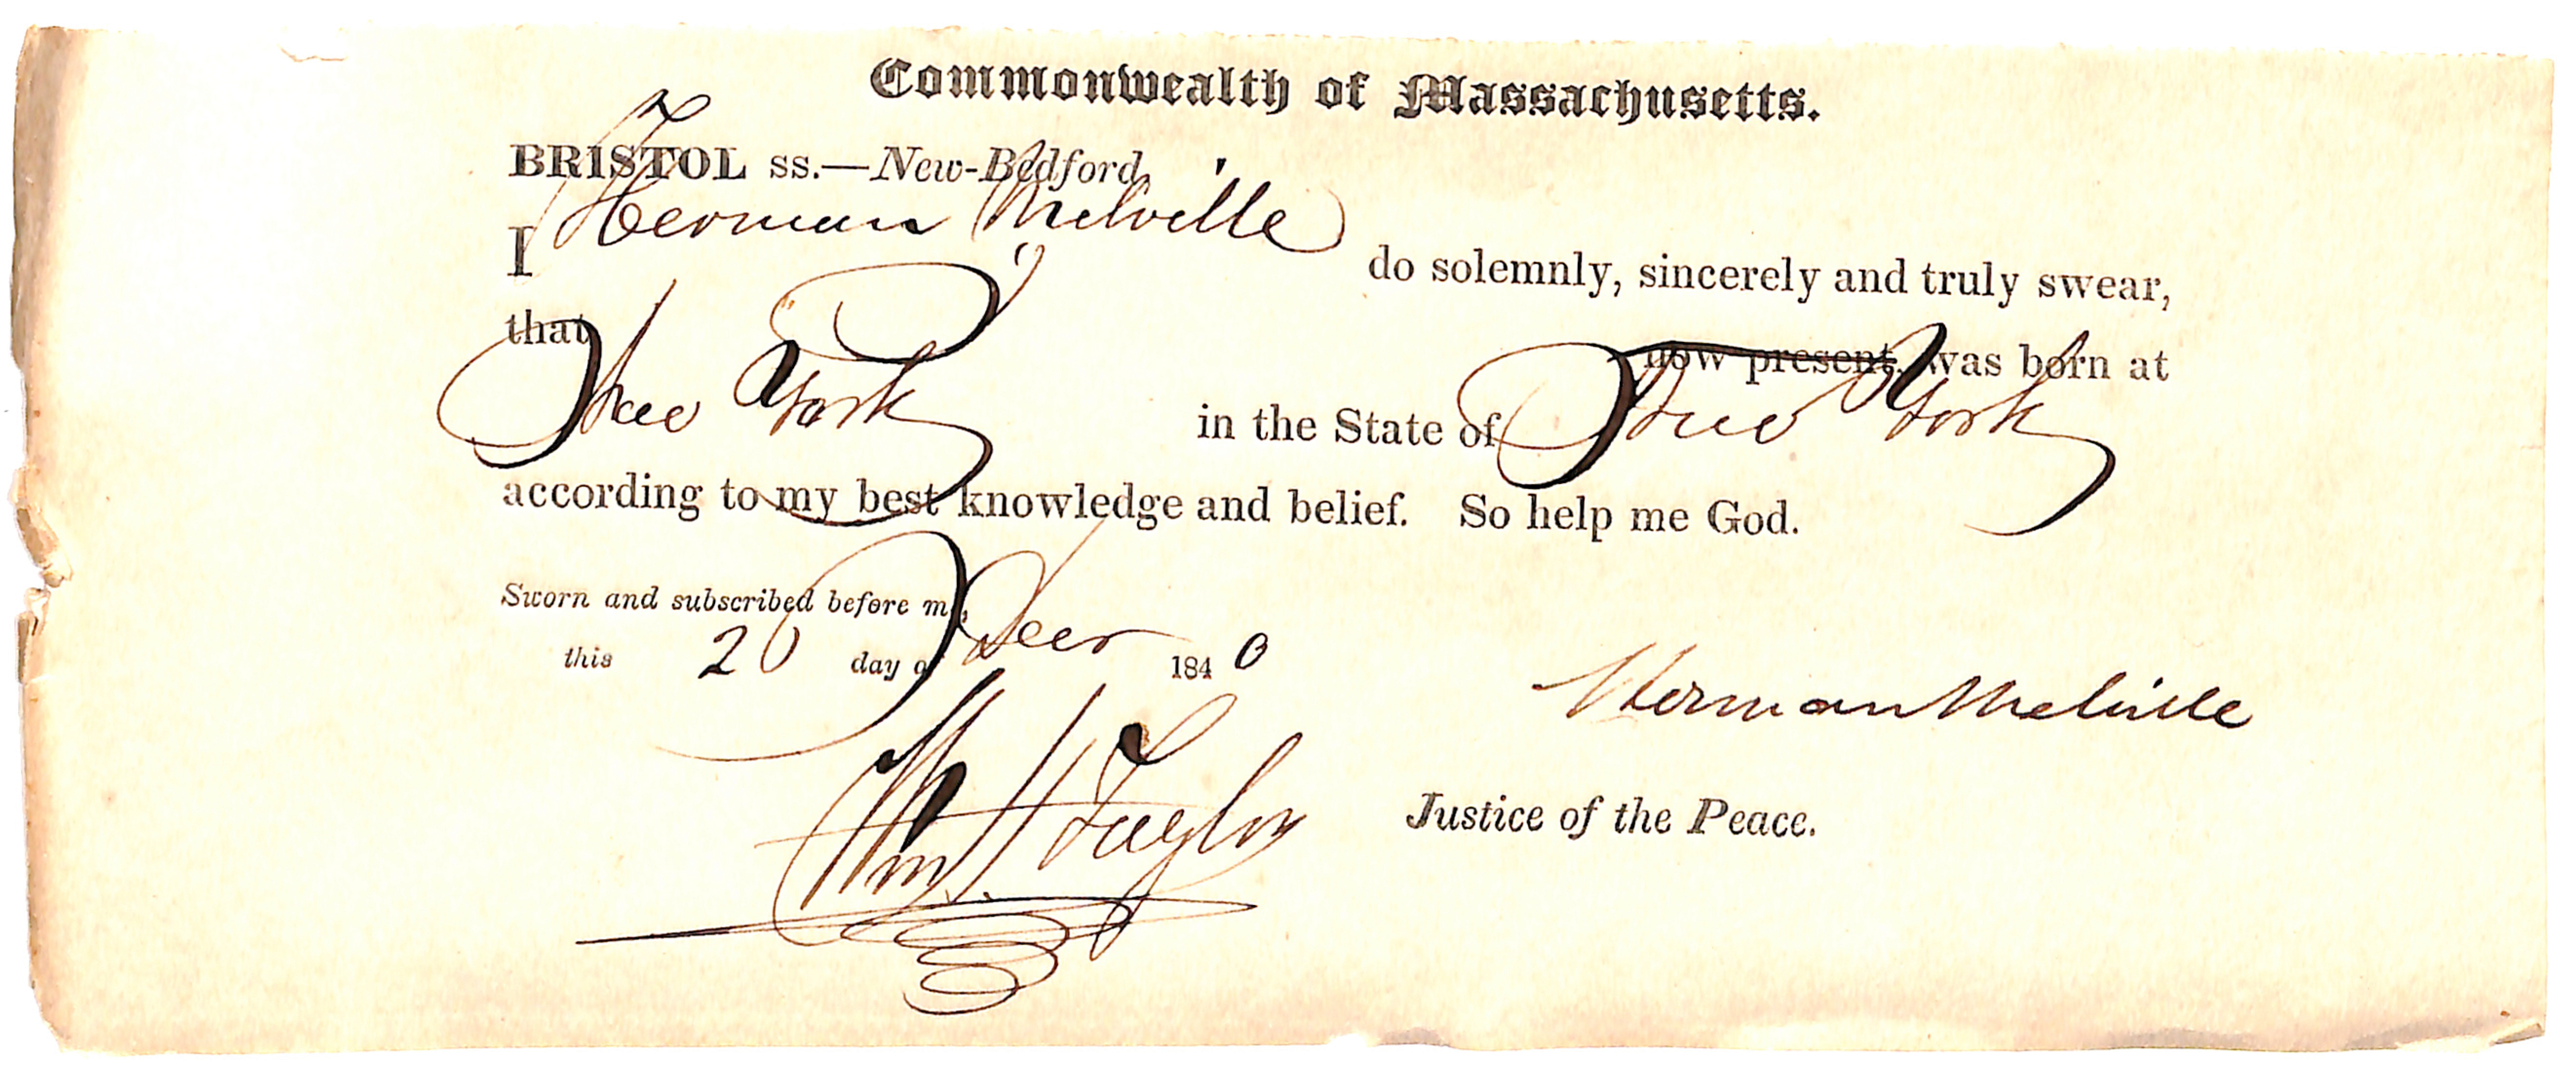 Commonwealth of Massachusetts.
BRISTOL ss.—New-Bedford,
I Herman Melville do solemnly, sincerely and truly swear,
that I now present, was born at
New York in the State of New York
according to my best knowledge and belief. So help me God.
Sworn and subscribed before me,
this 20 day of Decr 1840
Herman Melville
Wm H Taylor Justice of the Peace.